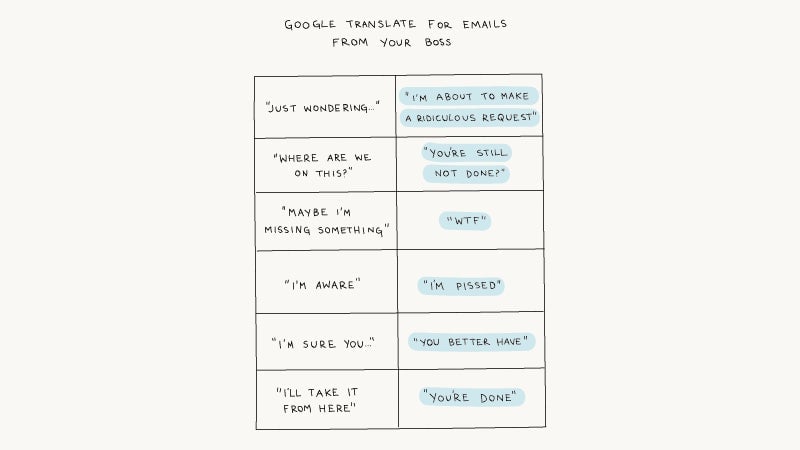 GOOGLE TRANSLATE FOR EMAILS
FROM YOUR BOSS
"JUST WONDERING..."
"I'M ABOUT TO MAKE
A RIDICULOUS REQUEST"
"WHERE ARE WE
ON THIS?"
"YOU'RE STILL
NOT DONE?"
"MAYBE I'M
MISSING SOMETHING"
"WTF"
"I'M AWARE"
"I'M PISSED"
"I'M SURE YOU..."
"YOU BETTER HAVE"
"I'LL TAKE IT
FROM HERE"
"YOU'RE DONE"